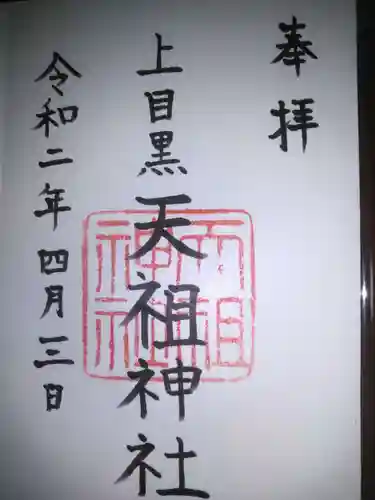 奉拝
上目黒天祖神社
天祖
神社
令和二年四月三日